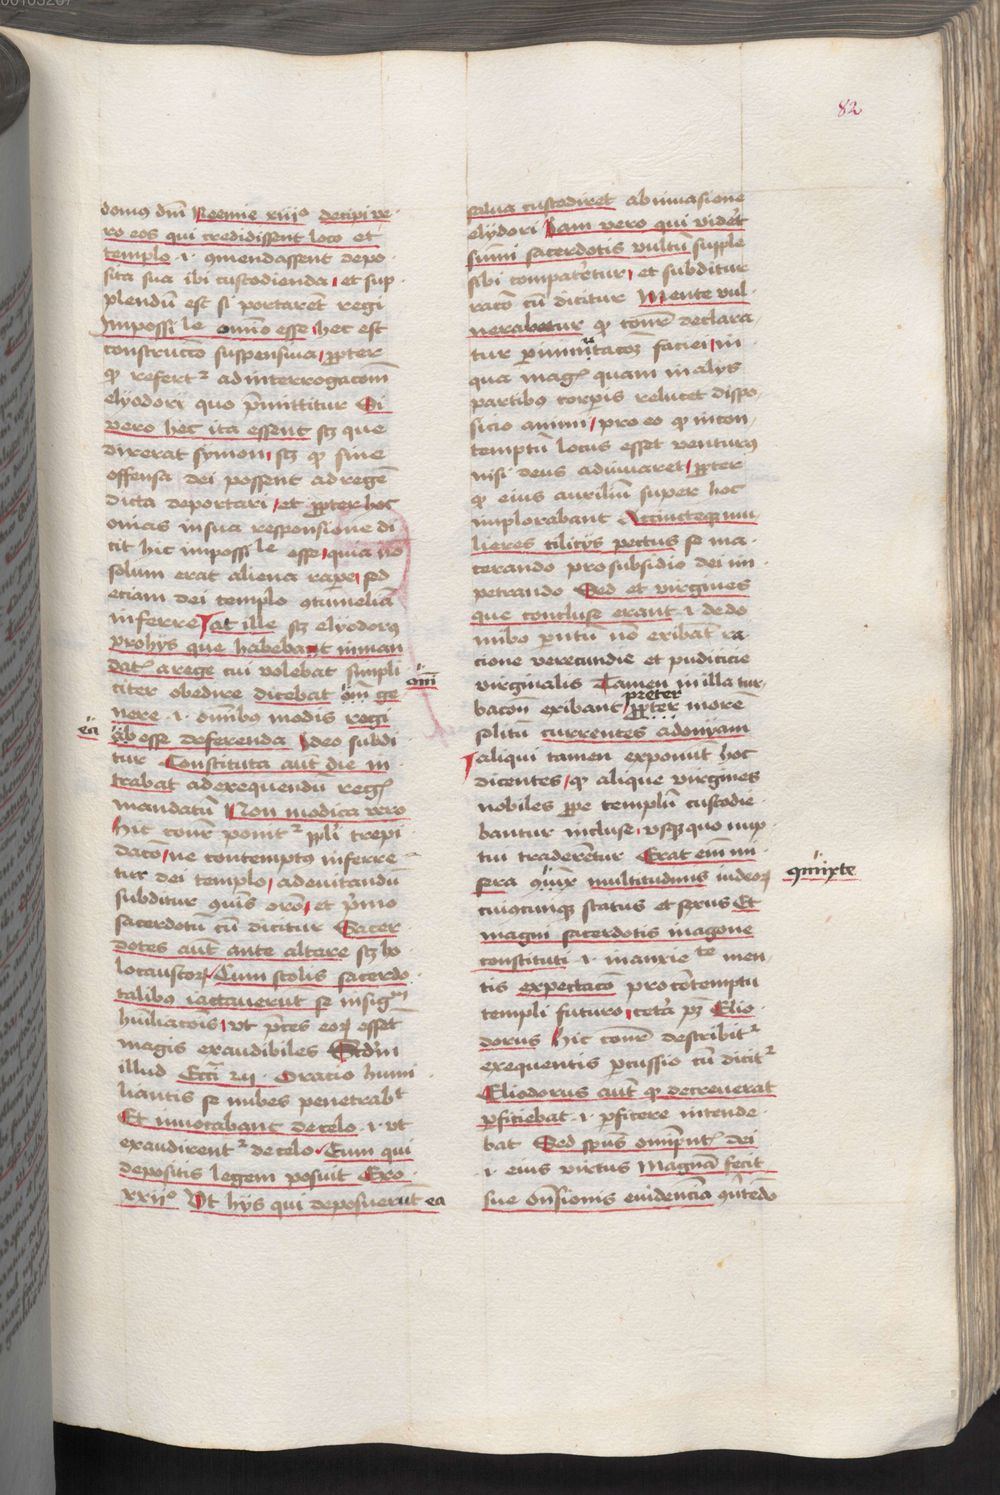 82
domus dni Neemie xiijo decipi ve
ro eos qui credidissent loco et
templo .i. ɔmendassent depo
sita sua ibi custodienda et sup
plendū est si portarēt regi
Impossile omīo esse hec est
construccō suspensiua ꝓpter
qꝫ refert ad interrogacōm
elyodori quo p̄mittitur Si
vero hec ita essent scꝫ que
dixerat symon scꝫ qꝫ sine
offensa dei possent ad regē
dicta deportari et ꝓpter hoc
onias in sua responsione di
cit hic impossile esse quia nō
solum erat aliena rapere sed
etiam dei templo ɔtumeliā
inferre At ille scꝫ elyodorꝰ
pro hijs que habebat in man
dat a rege cui volebat simpli
citer obedire dicebat om̄i ge
nere .i. om̄ibꝰ modis regi
ea
ab esse deferenda Ideo subdi
tur Constituta aut̄ die in
trabat ad exequendū reg
mandatū Non modica vero
hic cōnr ponit ppli trepi
dacō ne contemptus inferre
tur dei templo ad euitandū
subditur quis orō et p̄mo
sacerdotū cū dicitur Sacer
dotes aut̄ ante altare scꝫ ho
locaustorꝫ Cum stolis sacerdo
talibꝰ iactauerunt se in sig
humiliacōis vt p̄ces eorꝫ essēt
magis exaudibiles Scdm
illud Oracio humi
liantis se nubes penetrabt
Et inuocabant de celo .i. vt
exaudirent de celo Eum qui
depositis legem posuit Exo
xxijo Vt hijs qui deposuerūt ea
salua custodiret ab inuasione
elydori Iam vero qui videt
sum̄i sacerdotis vultū supple
sibi compateretur et subditur
racō cū dicitur Mente vul
nerabatur qꝫ cōnr declara
tur per inmutacōꝫ faciei in
qua mag quam in alijs
partibꝰ corpis relucet dispo
sicio animi pro eo qꝫ in con
temptū locus esset venturꝰ
nisi deus adiuuaret ꝓpter
qꝫ eius auxiliū super hoc
implorabant Accincteqꝫ mu
lieres cilicijs pectus se ma
cerando pro subsidio dei im
petrando Sed et virgines
que concluse erant .i. de do
mibo parentū nō exibāt ra
cione verecundie et pudicicie
virginalis Tamen in illa tur
bacōn exibant preter morē
solitū currentes ad onyam
aliqui tamen exponūt hoc
dicentes qꝫ alique virgines
nobiles ꝓpe templū custodie
bantur incluse vsqꝫ quo nup
tui traderētur Erat em̄ mi
sera ɔmix multitudinis iudeorꝫ
ɔmixte
cuiuscunqꝫ status et sexus Et
magni sacerdotis in agone
constituti .i. in anxiete men
tis expectacō pro cōtemptu
templi futuro cetera pꝫ Elio
dorus Hic cōnr describit
exequentis pcussio cū dicit
Eliodorus aut̄ qꝫ decreuerat
pficiebat .i. pficere intende
bat Sed spūs omīpnt dei
.i. eius virtus Magnā fecit
sue onsionis euidenciā